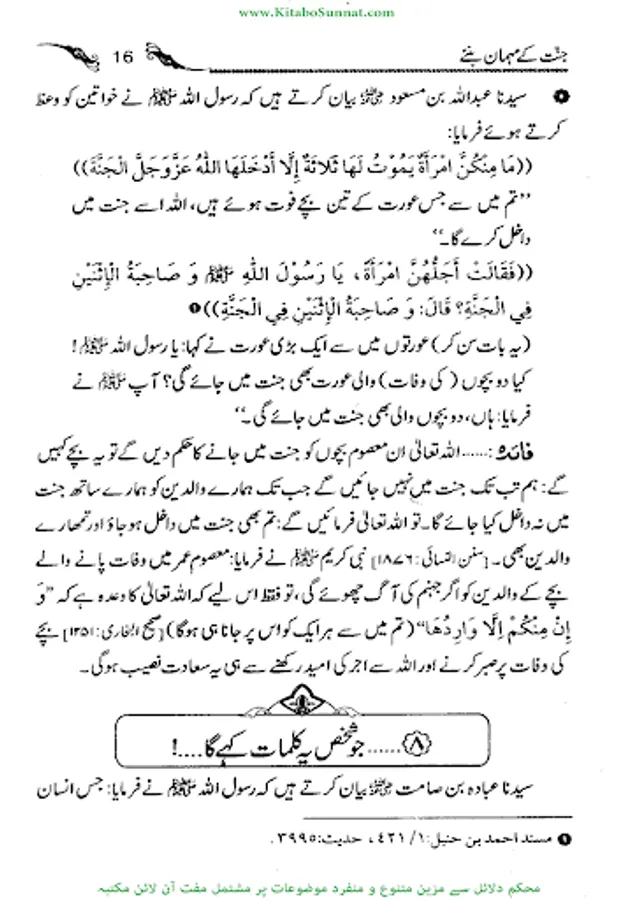 www.KitaboSunnat.com
جنت کے مہمان بنئے 16
سیدنا عبداللہ بن مسعود رضی اللہ عنہ بیان کرتے ہیں کہ رسول اللہ ﷺ نے خواتین کو وعظ
کرتے ہوئے فرمایا:
((مَا مِنْكُنَّ امْرَأَةٌ يَمُوْتُ لَهَا ثَلَاثَةٌ إِلَّا أَدْخَلَهَا اللهُ عَزَّوَجَلَّ الْجَنَّةَ))
’’تم میں سے جس عورت کے تین بچے فوت ہوئے ہیں، اللہ اسے جنت میں
داخل کرے گا۔‘‘
((فَقَالَتْ أَجَلُّهُنَّ امْرَأَةً، يَا رَسُوْلَ اللهِ ﷺ وَ صَاحِبَةُ الْإِثْنَيْنِ
فِي الْجَنَّةِ؟ قَالَ: وَ صَاحِبَةُ الْإِثْنَيْنِ فِي الْجَنَّةِ))❶
(یہ بات سن کر) عورتوں میں سے ایک بڑی عورت نے کہا: یا رسول اللہ ﷺ!
کیا دو بچوں (کی وفات) والی عورت بھی جنت میں جائے گی؟ آپ ﷺ نے
فرمایا: ہاں، دو بچوں والی بھی جنت میں جائے گی۔‘‘
فائدہ:......اللہ تعالیٰ ان معصوم بچوں کو جنت میں جانے کا حکم دیں گے تو یہ بچے کہیں
گے: ہم تب تک جنت میں نہیں جائیں گے جب تک ہمارے والدین کو ہمارے ساتھ جنت
میں نہ داخل کیا جائے گا۔ تو اللہ تعالیٰ فرمائیں گے: تم بھی جنت میں داخل ہو جاؤ اور تمھارے
والدین بھی۔ [سنن النسائی: ۱۸۷۶] نبی کریم ﷺ نے فرمایا: معصوم عمر میں وفات پانے والے
بچے کے والدین کو اگر جہنم کی آگ چھوئے گی، تو فقط اس لیے کہ اللہ تعالیٰ کا وعدہ ہے کہ ”وَ
إِنْ مِنْكُمْ إِلَّا وَارِدُهَا“ (تم میں سے ہر ایک کو اس پر جانا ہی ہوگا) [صحیح البخاری: ۱۲۵۱] بچے
کی وفات پر صبر کرنے اور اللہ سے اجر کی امید رکھنے سے ہی یہ سعادت نصیب ہوگی۔
۸ ...... جو شخص یہ کلمات کہے گا ....!
سیدنا عبادہ بن صامت رضی اللہ عنہ بیان کرتے ہیں کہ رسول اللہ ﷺ نے فرمایا: جس انسان
❶ مسند احمد بن حنبل: ۱/ ۴۲۱، حدیث: ۳۹۹۵.
محکم دلائل سے مزین متنوع و منفرد موضوعات پر مشتمل مفت آن لائن مکتبہ